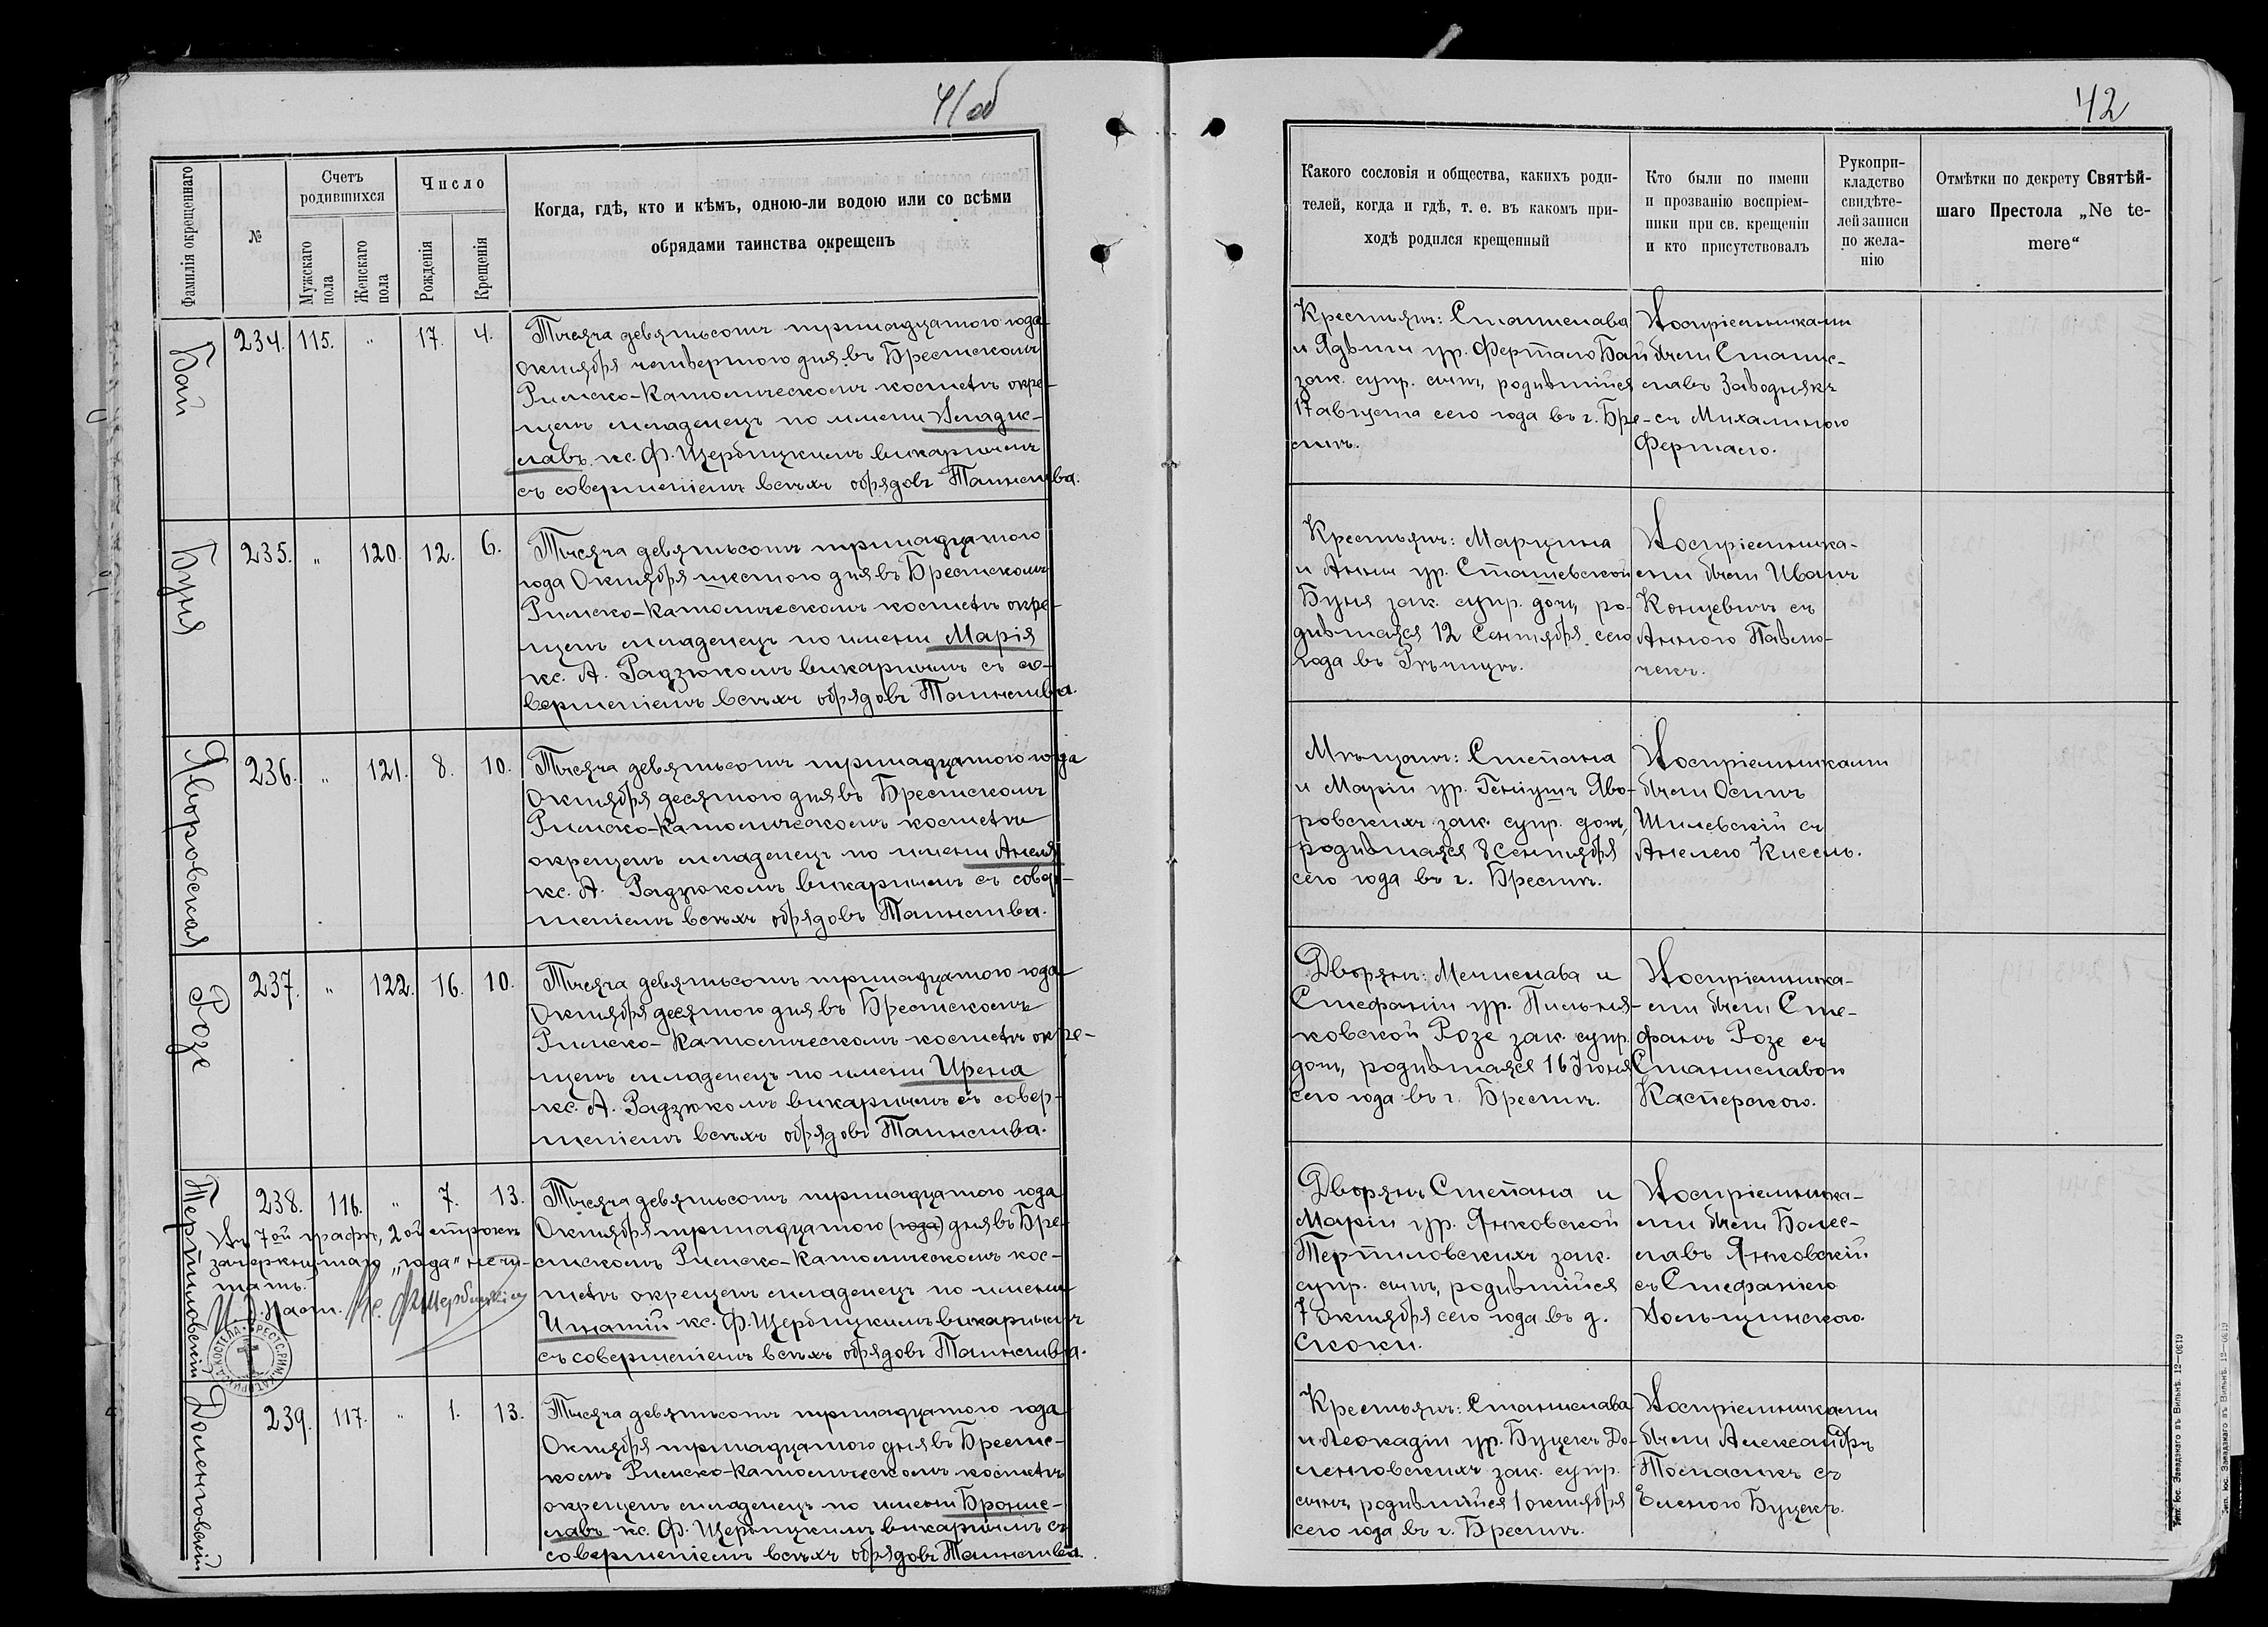 41об
Фамилія окрещеннаго
№
Счетъ
родившихся
Мужскаго
пола
Женскаго
пола
Число
Рожденія
Крещенія
Когда, гдѣ, кто и кѣмъ, одною-ли водою или со всѣми
обрядами таинства окрещенъ
Бай
234. 115. „ 17. 4.
Тысяча девятьсотъ тринадцатого года
Октября четвертого дня въ Брестскомъ
Римско-Католическомъ костелѣ окре-
щенъ младенецъ по имени Владис-
лавъ кс. Ф. Щербицкимъ викаріемъ
съ совершеніемъ всѣхъ обрядовъ Таинства.
Буня
235. „ 120. 12. 6.
Тысяча девятьсотъ тринадцатого
года Октября шестого дня въ Брестскомъ
Римско-Католическомъ костелѣ окре-
щенъ младенецъ по имени Марія
кс. А. Радзюкомъ викаріемъ съ со-
вершеніемъ всѣхъ обрядовъ Таинства.
Яворовская
236. „ 121. 8. 10.
Тысяча девятьсотъ тринадцатого года
Октября десятого дня въ Брестскомъ
Римско-Католическомъ костелѣ
окрещенъ младенецъ по имени Анеля
кс. А. Радзюкомъ викаріемъ съ совер-
шеніемъ всѣхъ обрядовъ Таинства.
Розе
237. „ 122. 16. 10.
Тысяча девятьсотъ тринадцатого года
Октября десятого дня въ Брестскомъ
Римско-Католическомъ костелѣ окре-
щенъ младенецъ по имени Ирена
кс. А. Радзюкомъ викаріемъ съ совер-
шеніемъ всѣхъ обрядовъ Таинства.
Терпиловскій
238. 116. „ 7. 13.
Въ 7ой графѣ, 2ой строкѣ
зачеркнутаго „года" не чи-
тать.
И. д. Наст. Кс. Ф. Щербицкій
Тысяча девятьсотъ тринадцатого года
Октября тринадцатого (года) дня въ Бре-
стскомъ Римско-Католическомъ кос-
телѣ окрещенъ младенецъ по имени
Игнатій кс. Ф. Щербицкимъ викаріемъ
съ совершеніемъ всѣхъ обрядовъ Таинства.
Доленговскій
239. 117. „ 1. 13.
Тысяча девятьсотъ тринадцатого года
Октября тринадцатого дня въ Брестс-
комъ Римско-Католическомъ костелѣ
окрещенъ младенецъ по имени Брони-
лавъ кс. Ф. Щербицкимъ викаріемъ съ
совершеніемъ всѣхъ обрядовъ Таинства.
42
Какого сословія и общества, какихъ роди-
телей, когда и гдѣ, т. е. въ какомъ при-
ходѣ родился крещенный
Кто были по имени
и прозванію воспріем-
ники при св. крещеніи
и кто присутствовалъ
Рукопри-
кладство
свидѣте-
лей записи
по жела-
нію
Отмѣтки по декрету Святѣй-
шаго Престола „Ne te-
mere“
Крестьянъ: Станислава
и Ядвиги ур. Ферташо Бай
зак. супр. сынъ, родившійся
17 августа сего года въ г. Бре-
стѣ.
Воспріемниками
были Станис-
лавъ Заводнякъ
съ Михалиною
Ферташо.
Крестьянъ: Марцина
и Анны ур. Сташевской
Буня зак. супр. дочь, ро-
дившаяся 12 Сентября сего
года въ Рѣчицѣ.
Воспріемника-
ми были Иванъ
Концевичъ съ
Анною Павлю-
чекъ.
Мѣщанъ: Степана
и Маріи ур. Геніушъ Яво-
ровскихъ зак. супр. дочь,
родившаяся 8 Сентября
сего года въ г. Брестѣ.
Воспріемниками
были Осипъ
Шилевскій съ
Анелею Кисель.
Дворянъ: Мечислава и
Стефаніи ур. Пильня-
ковской Розе зак. супр.
дочь, родившаяся 16 Іюня
сего года въ г. Брестѣ.
Воспріемника-
ми были Сте-
фанъ Розе съ
Станиславою
Касперскою.
Дворянъ Степана и
Маріи ур. Янковской
Терпиловскихъ зак.
супр. сынъ, родившійся
7 Октября сего года въ д.
Скоки.
Воспріемника-
ми были Болес-
лавъ Янковскій
съ Стефаніею
Вольщинскою.
Крестьянъ: Станислава
и Леокадіи ур. Буцекъ До-
ленговскихъ зак. супр.
сынъ, родившійся 1 октября
сего года въ г. Брестѣ.
Воспріемниками
были Александръ
Томасикъ съ
Еленою Буцекъ.
Тип. Іос. Завадзкаго въ Вильнѣ. 12—0619
Тип. Іос. Завадзкаго въ Вильнѣ. 12—0619